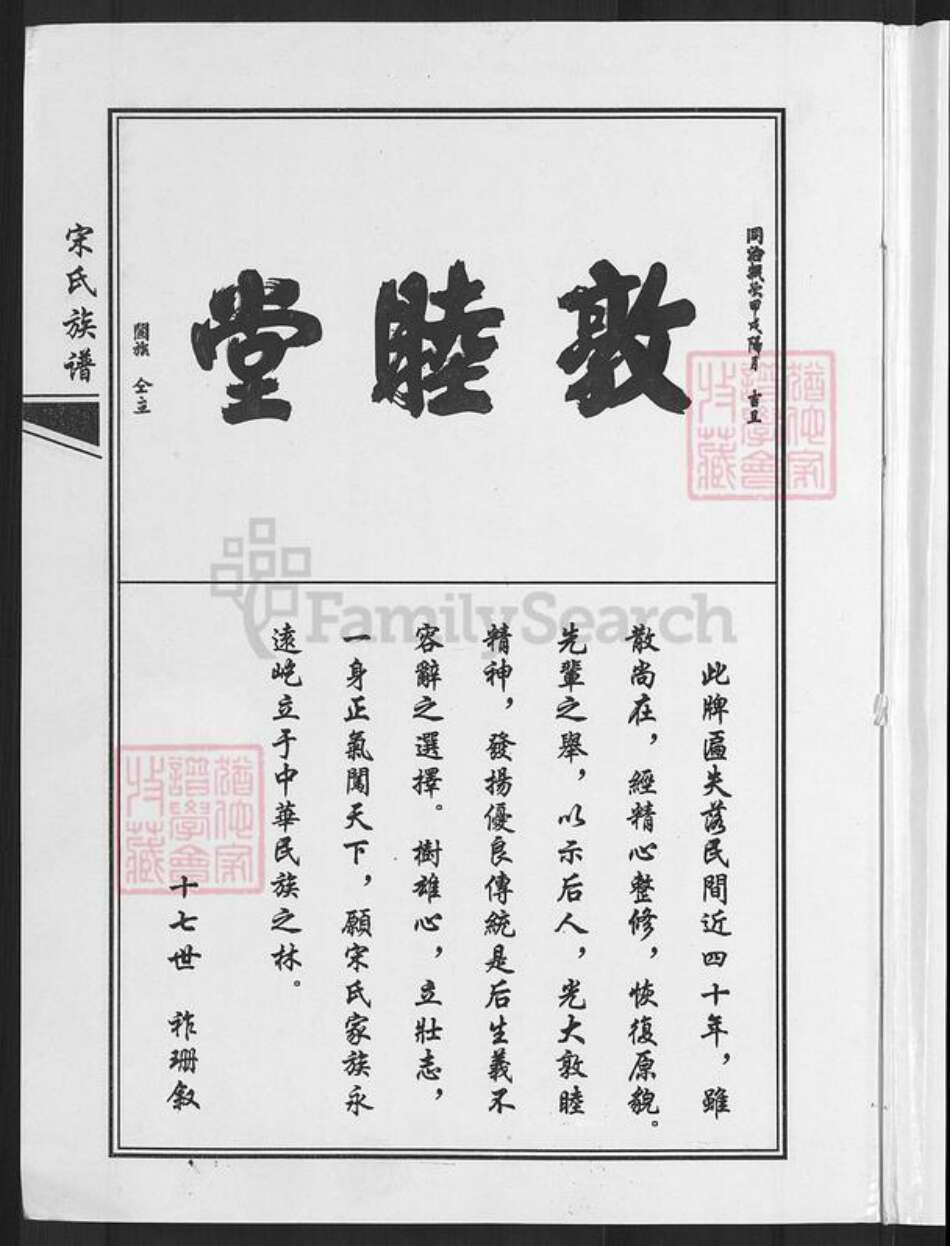 同治拾叁甲戌陽月 吉旦
敦睦堂
闔族 仝立
此牌匾失落民間近四十年，雖
散尚在，經精心整修，恢復原貌。
先輩之舉，以示后人，光大敦睦
精神，發揚優良傳統是后生義不
容辭之選擇。樹雄心，立壯志，
一身正氣闖天下，願宋氏家族永
遠屹立于中華民族之林。
十七世 祚珊叙
宋氏族谱
猶他家譜學會收藏
猶他家譜學會收藏
FamilySearch